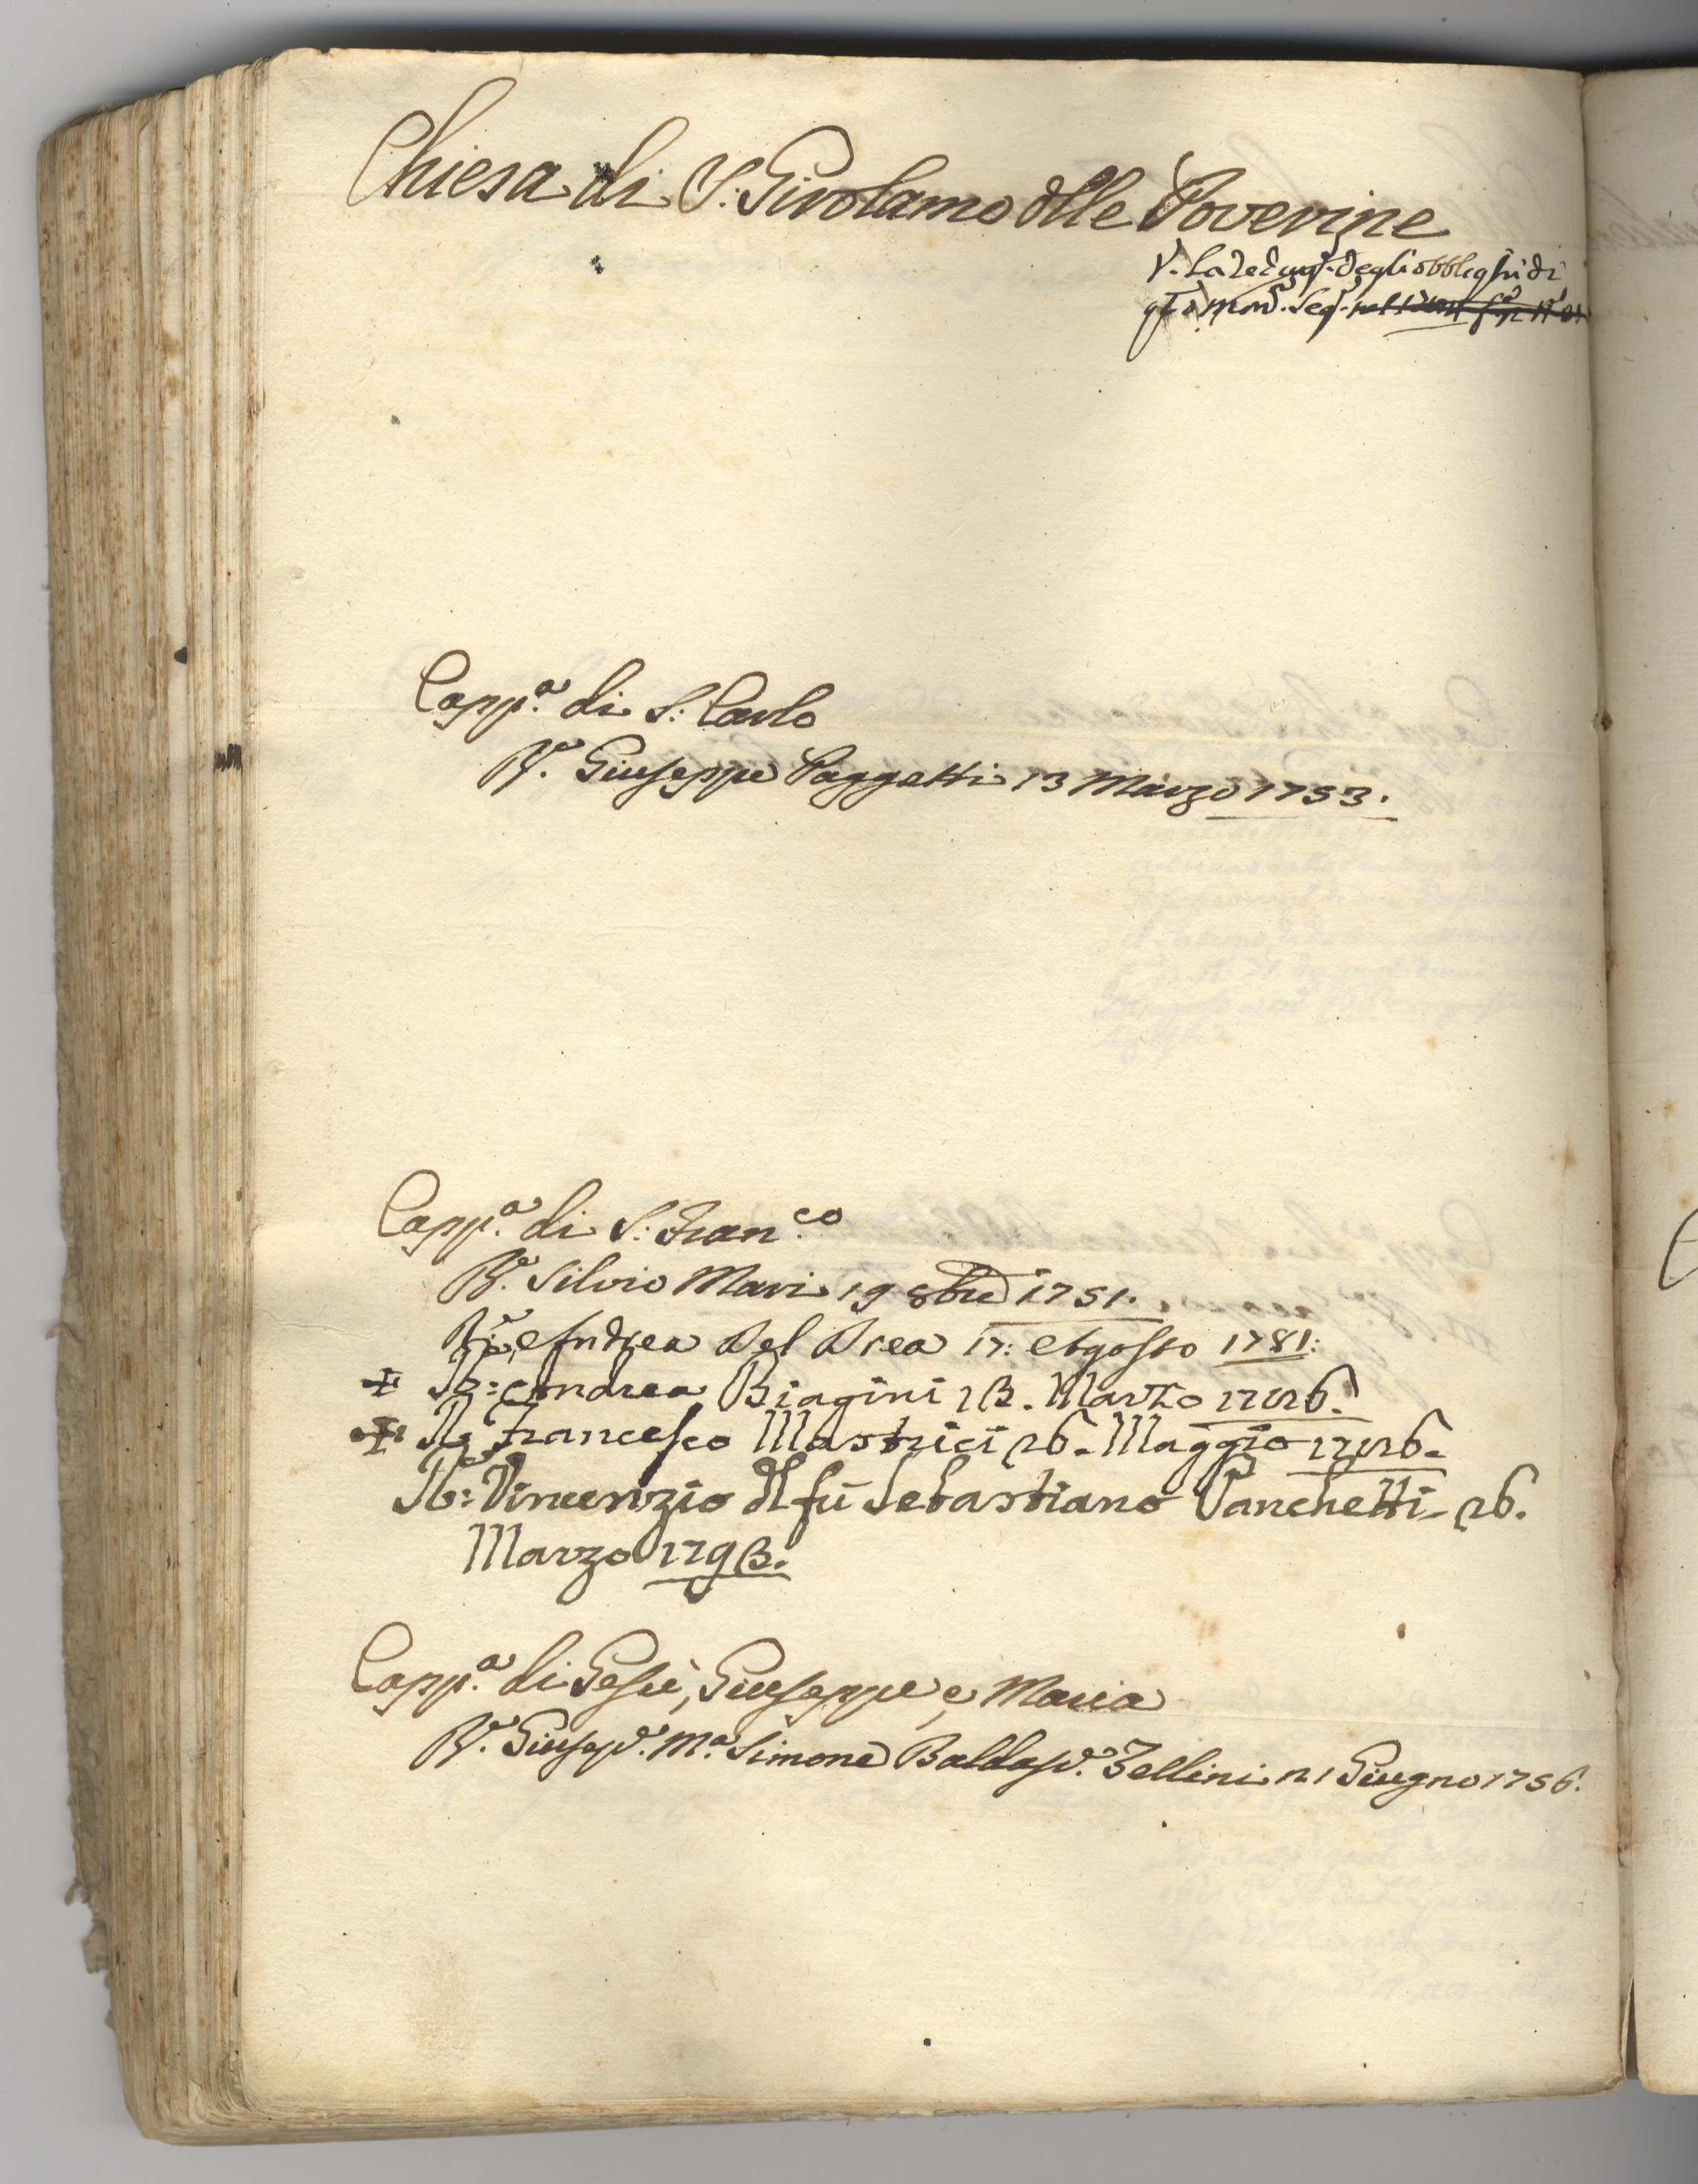 Chiesa di S. Girolamo dlle Poverine
V. la reduz.e degli obblighi di
q.to mon.o seg.
Capp.a di S: Carlo
R.e Giuseppe Paggetti 13 Marzo 1753.
Capp.a di S: Fran.co
R.e Silvio Mari 19 8bre 1751.
Andrea Del Drea 17: Agosto 1781:
Andrea Biagini 13. Marzo 1786.
Francesco Mastrici 26. Maggio 1786.
Vincenzio dl fù Sebastiano Panchetti 26.
Marzo 1793.
Capp.a di Gesù, Giuseppe, e Maria
R.e Gius.e M.a Simone Baldas.e Zellini 21 Giugno 1756.